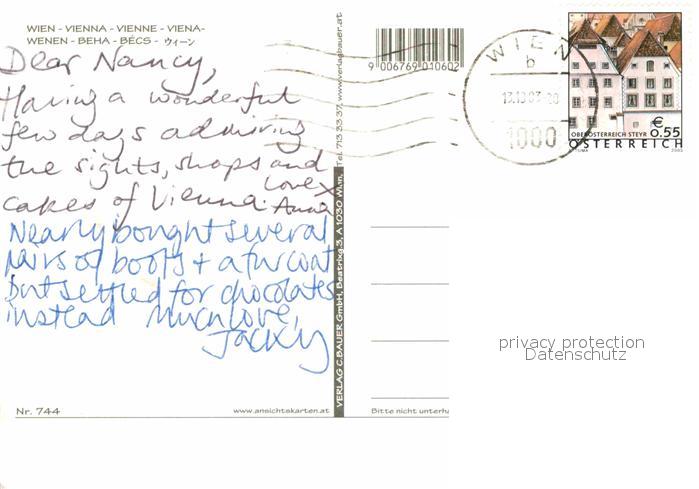 WIEN - VIENNA - VIENNE - VIENA-
WENEN - BEHA - BÉCS - ウィーン
Dear Nancy,
Having a wonderful
few days admiring
the sights, shops and
cakes of Vienna.
Love x
Anna
Nearly bought several
pairs of boots + a fur coat
but settled for chocolates
instead Much love,
Jacky
Nr. 744
www.ansichtskarten.at
VERLAG C.BAUER GmbH, Beatrixg.3, A 1030 Wien, Tel. 713 33 37 www.verlagbauer.at
9 006769 010602
Bitte nicht unterha
WIEN
b
1000
€
0.55
OBERÖSTERREICH STEYR
ÖSTERREICH
2003
privacy protection
Datenschutz